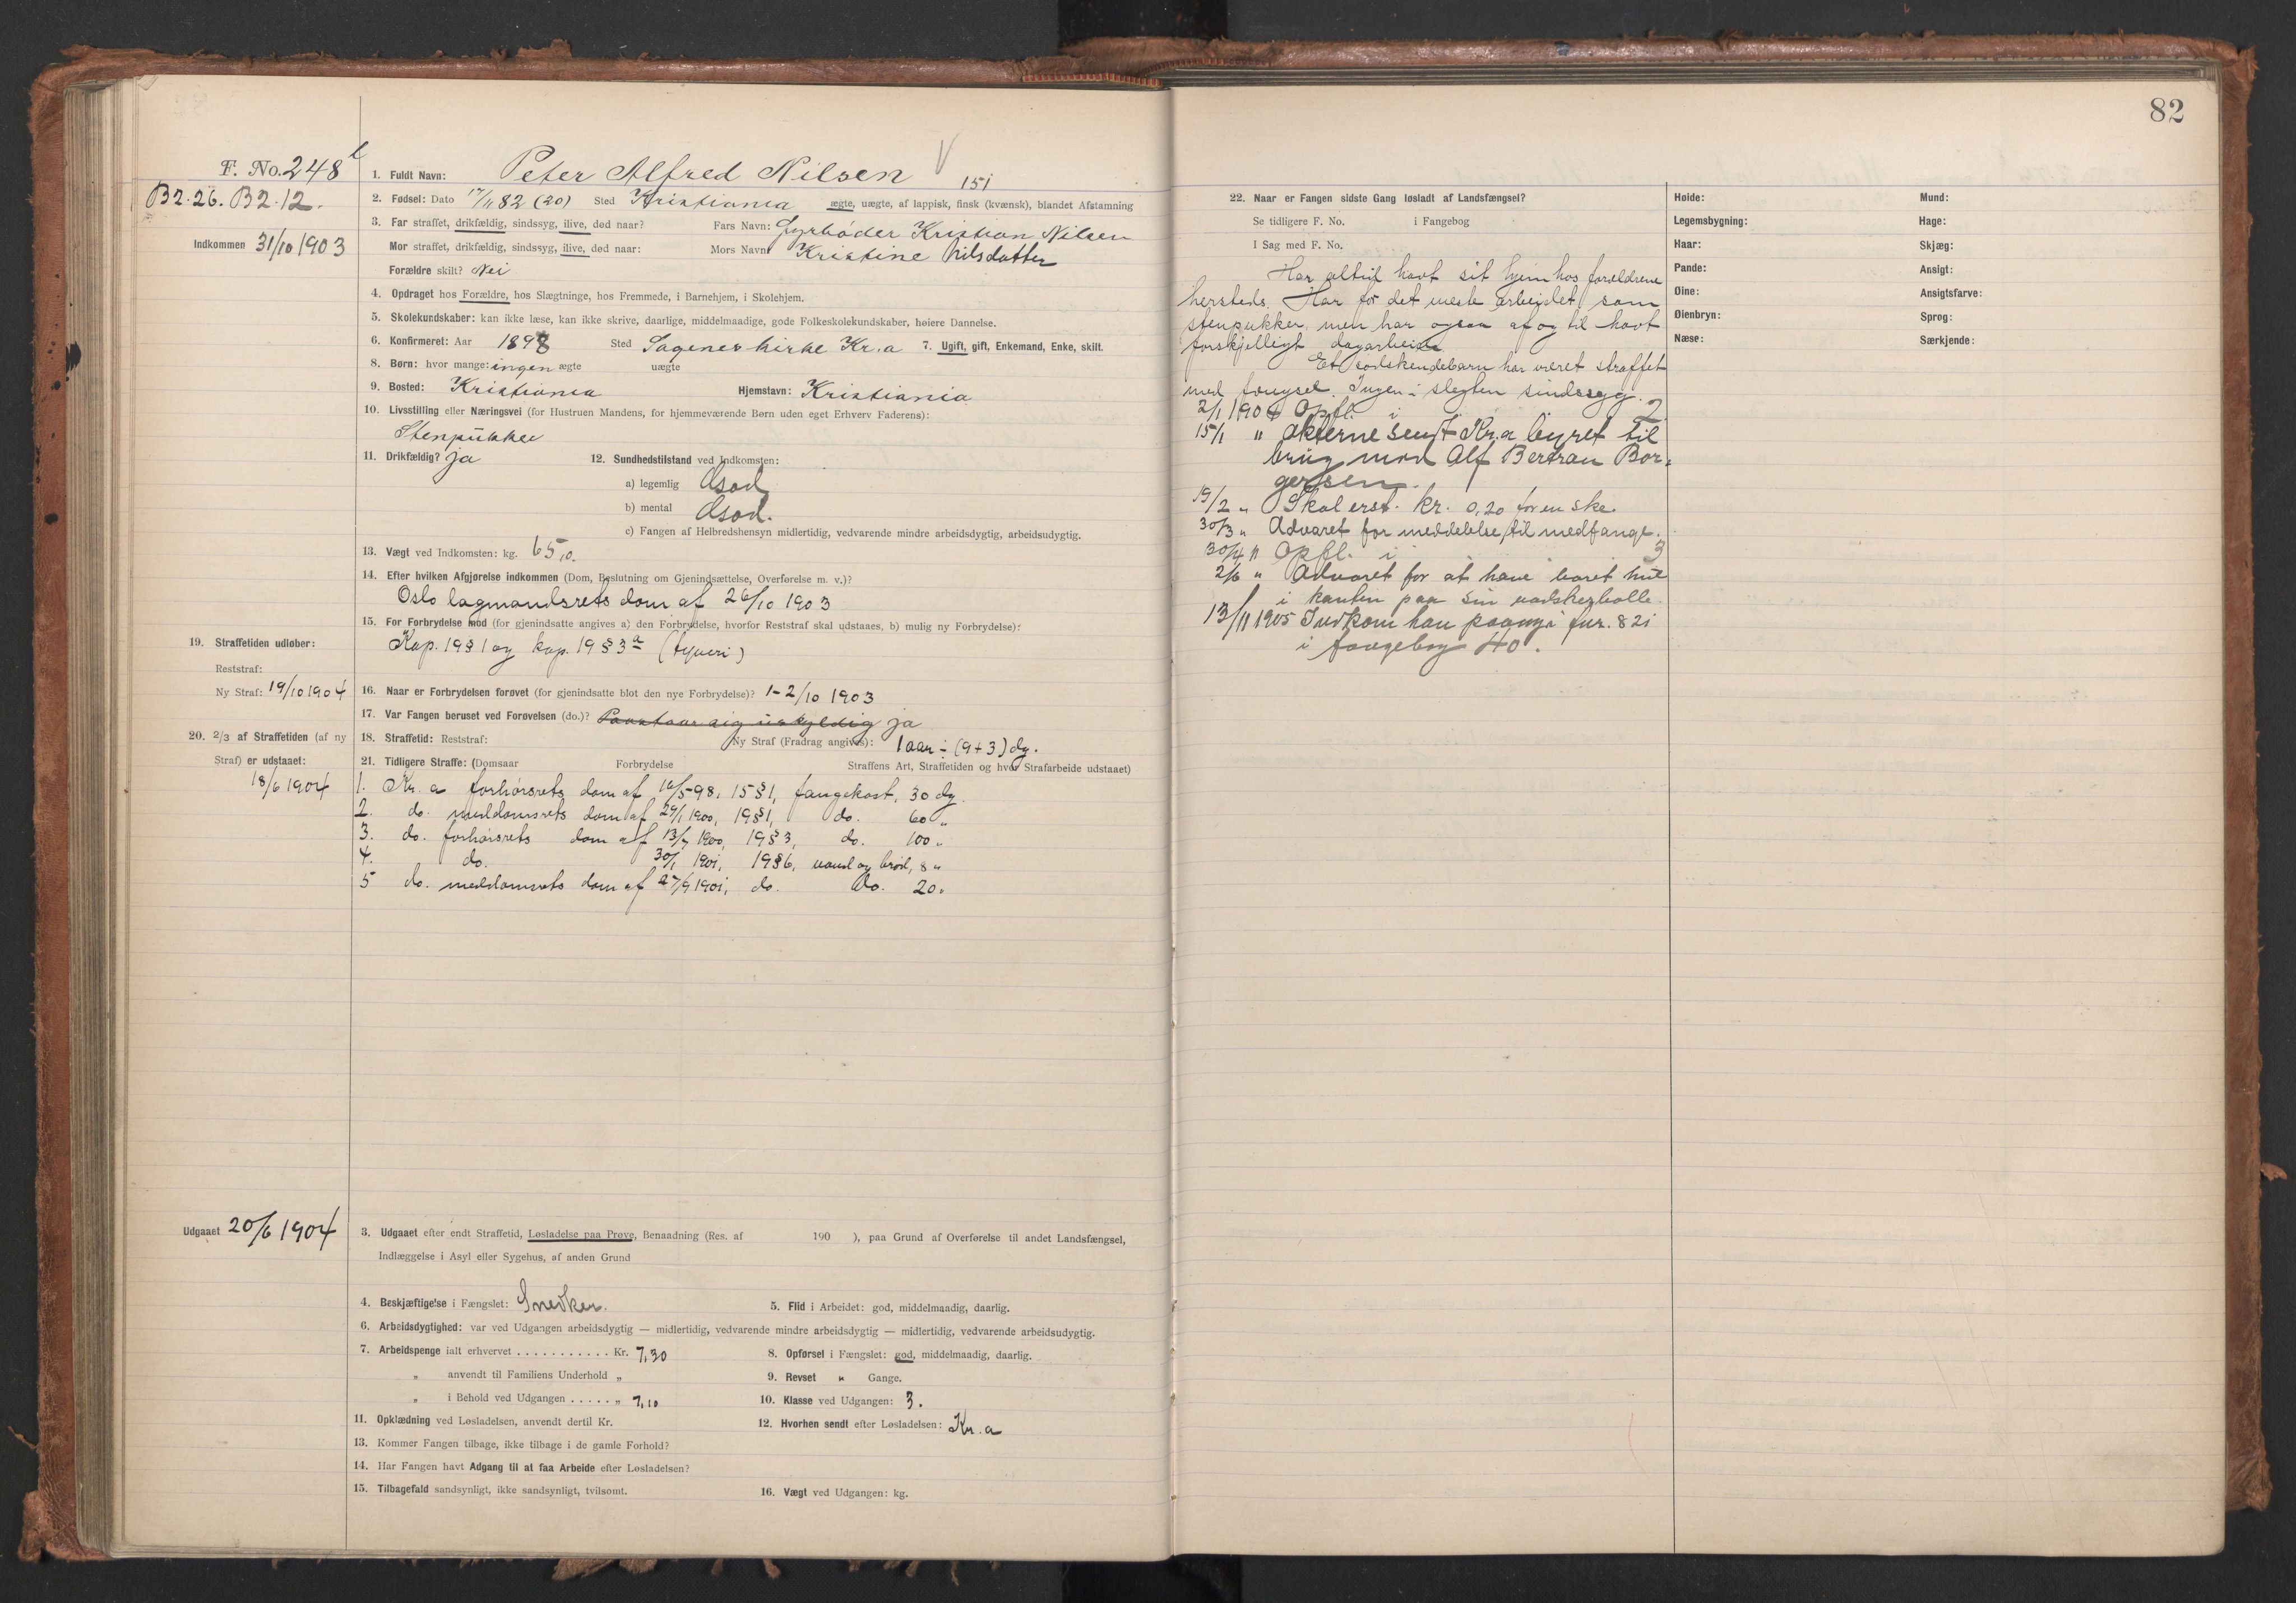 82
F. No. 248
B2.26. B2.12.
Indkommen 31/10 1903
1. Fuldt Navn: Peter Alfred Nilsen 151
2. Fødsel: Dato 17/11 82 (20) Sted Kristiania ægte, uægte, af lappisk, finsk (kvænsk), blandet Afstamning
3. Far straffet, drikfældig, sindssyg, ilive, død naar? Fars Navn: Fyrbøder Kristian Nilsen
Mor straffet, drikfældig, sindssyg, ilive, død naar: Mors Navn: Kristine Nilsdatter
Forældre skilt? Nei
4. Opdraget hos Forældre, hos Slægtninge, hos Fremmede, i Barnehjem, i Skolehjem.
5. Skolekundskaber: kan ikke læse, kan ikke skrive, daarlige, middelmaadige, gode Folkeskolekundskaber, høiere Dannelse.
6. Konfirmeret: Aar 1898 Sted Sagenes kirke Kr.a 7. Ugift, gift, Enkemand, Enke, skilt.
8. Børn: hvor mange: ingen ægte uægte
9. Bosted: Kristiania Hjemstavn: Kristiania
10. Livsstilling eller Næringsvei (for Hustruen Mandens, for hjemmeværende Børn uden eget Erhverv Faderens):
Stenpukker
11. Drikfældig? ja 12. Sundhedstilstand ved Indkomsten:
a) legemlig God
b) mental God.
c) Fangen af Helbredshensyn midlertidig, vedvarende mindre arbeidsdygtig, arbeidsudygtig.
13. Vægt ved Indkomsten: kg. 65,0.
14. Efter hvilken Afgjørelse indkommen (Dom, Beslutning om Gjenindsættelse, Overførelse m. v.)?
Oslo lagmandsrets dom af 26/10 1903
15. For Forbrydelse mod (for gjenindsatte angives a) den Forbrydelse, hvorfor Reststraf skal udstaaes, b) mulig ny Forbrydelse):
Kap. 19 § 1 og kap. 19 § 3a (tyveri)
19. Straffetiden udløber:
Reststraf:
Ny Straf: 19/10 1904
16. Naar er Forbrydelsen forøvet (for gjenindsatte blot den nye Forbrydelse)? 1-2/10 1903
17. Var Fangen beruset ved Forøvelsen (do.)? Paastaar sig uskyldig ja
20. 2/3 af Straffetiden (af ny
Straf) er udstaaet:
18/6 1904
18. Straffetid: Reststraf: Ny Straf (Fradrag angives): 1 aar ÷ (9+3) dg.
21. Tidligere Straffe: (Domsaar Forbrydelse Straffens Art, Straffetiden og hvor Strafarbeide udstaaet)
1. Kr.a forhørsrets dom af 16/5 98, 15 § 1, fangekost, 30 dg.
2. do. meddomsrets dom af 29/1 1900, 19 § 1, do. 60 "
3. do. forhørsrets dom af 13/7 1900, 19 § 3, do. 100 "
4. do. 30/1 1901, 19 § 6, vand og brød, 8 "
5 do. meddomsrets dom af 27/9 1901, do. do. 20 "
Udgaaet 20/6 1904
3. Udgaaet efter endt Straffetid, Løsladelse paa Prøve, Benaadning (Res. af 190 ), paa Grund af Overførelse til andet Landsfængsel,
Indlæggelse i Asyl eller Sygehus, af anden Grund
4. Beskjæftigelse i Fængslet: Snedker. 5. Flid i Arbeidet: god, middelmaadig, daarlig.
6. Arbeidsdygtighed: var ved Udgangen arbeidsdygtig — midlertidig, vedvarende mindre arbeidsdygtig — midlertidig, vedvarende arbeidsudygtig.
7. Arbeidspenge ialt erhvervet . . . . . . . . . . . Kr. 7,30 8. Opførsel i Fængslet: god, middelmaadig, daarlig.
" anvendt til Familiens Underhold " 9. Revset " Gange.
" i Behold ved Udgangen . . . . . " 7,10 10. Klasse ved Udgangen: 3.
11. Opklædning ved Løsladelsen, anvendt dertil Kr. 12. Hvorhen sendt efter Løsladelsen: Kr.a
13. Kommer Fangen tilbage, ikke tilbage i de gamle Forhold?
14. Har Fangen havt Adgang til at faa Arbeide efter Løsladelsen?
15. Tilbagefald sandsynligt, ikke sandsynligt, tvilsomt. 16. Vægt ved Udgangen: kg.
22. Naar er Fangen sidste Gang løsladt af Landsfængsel?
Se tidligere F. No. i Fangebog
I Sag med F. No.
Har altid havt sit hjem hos forældrene
hersteds. Har for det meste arbeidet som
stenpukker, men har ogsaa af og til havt
forskjelligt dagarbeide.
Et sødskendebarn har været straffet
med fængsel. Ingen i slegten sindssyg.
2/1 1904 Opfl. i 2
15/1 " Akterne sendt Kr.a byret til
brug mod Alf Bertran Bor-
gersen.
19/2 " Skal erst. kr. 0,20 for en ske.
30/3 " Advaret for meddelelse til medfange.
30/4 " Opfl. i 3
2/6 " Advaret for at have boret hul
i kanten paa sin vadskebolle.
13/11 1905 Indkom han paany i fnr. 821
i fangebog 40.
Høide:
Legemsbygning:
Haar:
Pande:
Øine:
Øienbryn:
Næse:
Mund:
Hage:
Skjæg:
Ansigt:
Ansigtsfarve:
Sprog:
Særkjende: